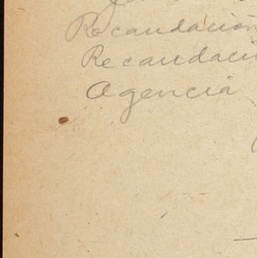 Recaudación
Recaudaci
Agencia